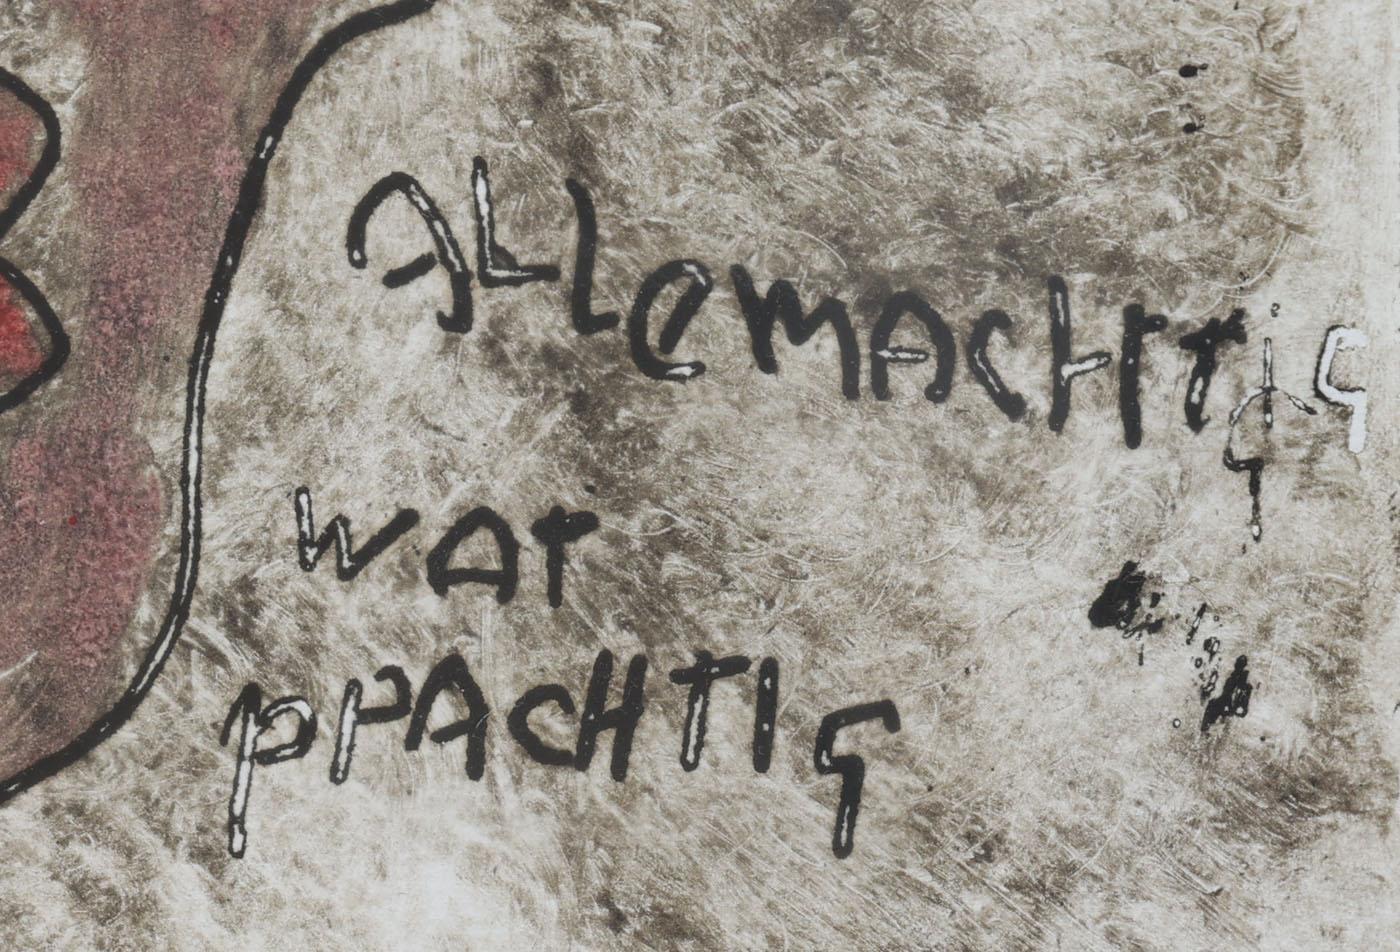 ALLeMACHTIG
WAT
PRACHTIG